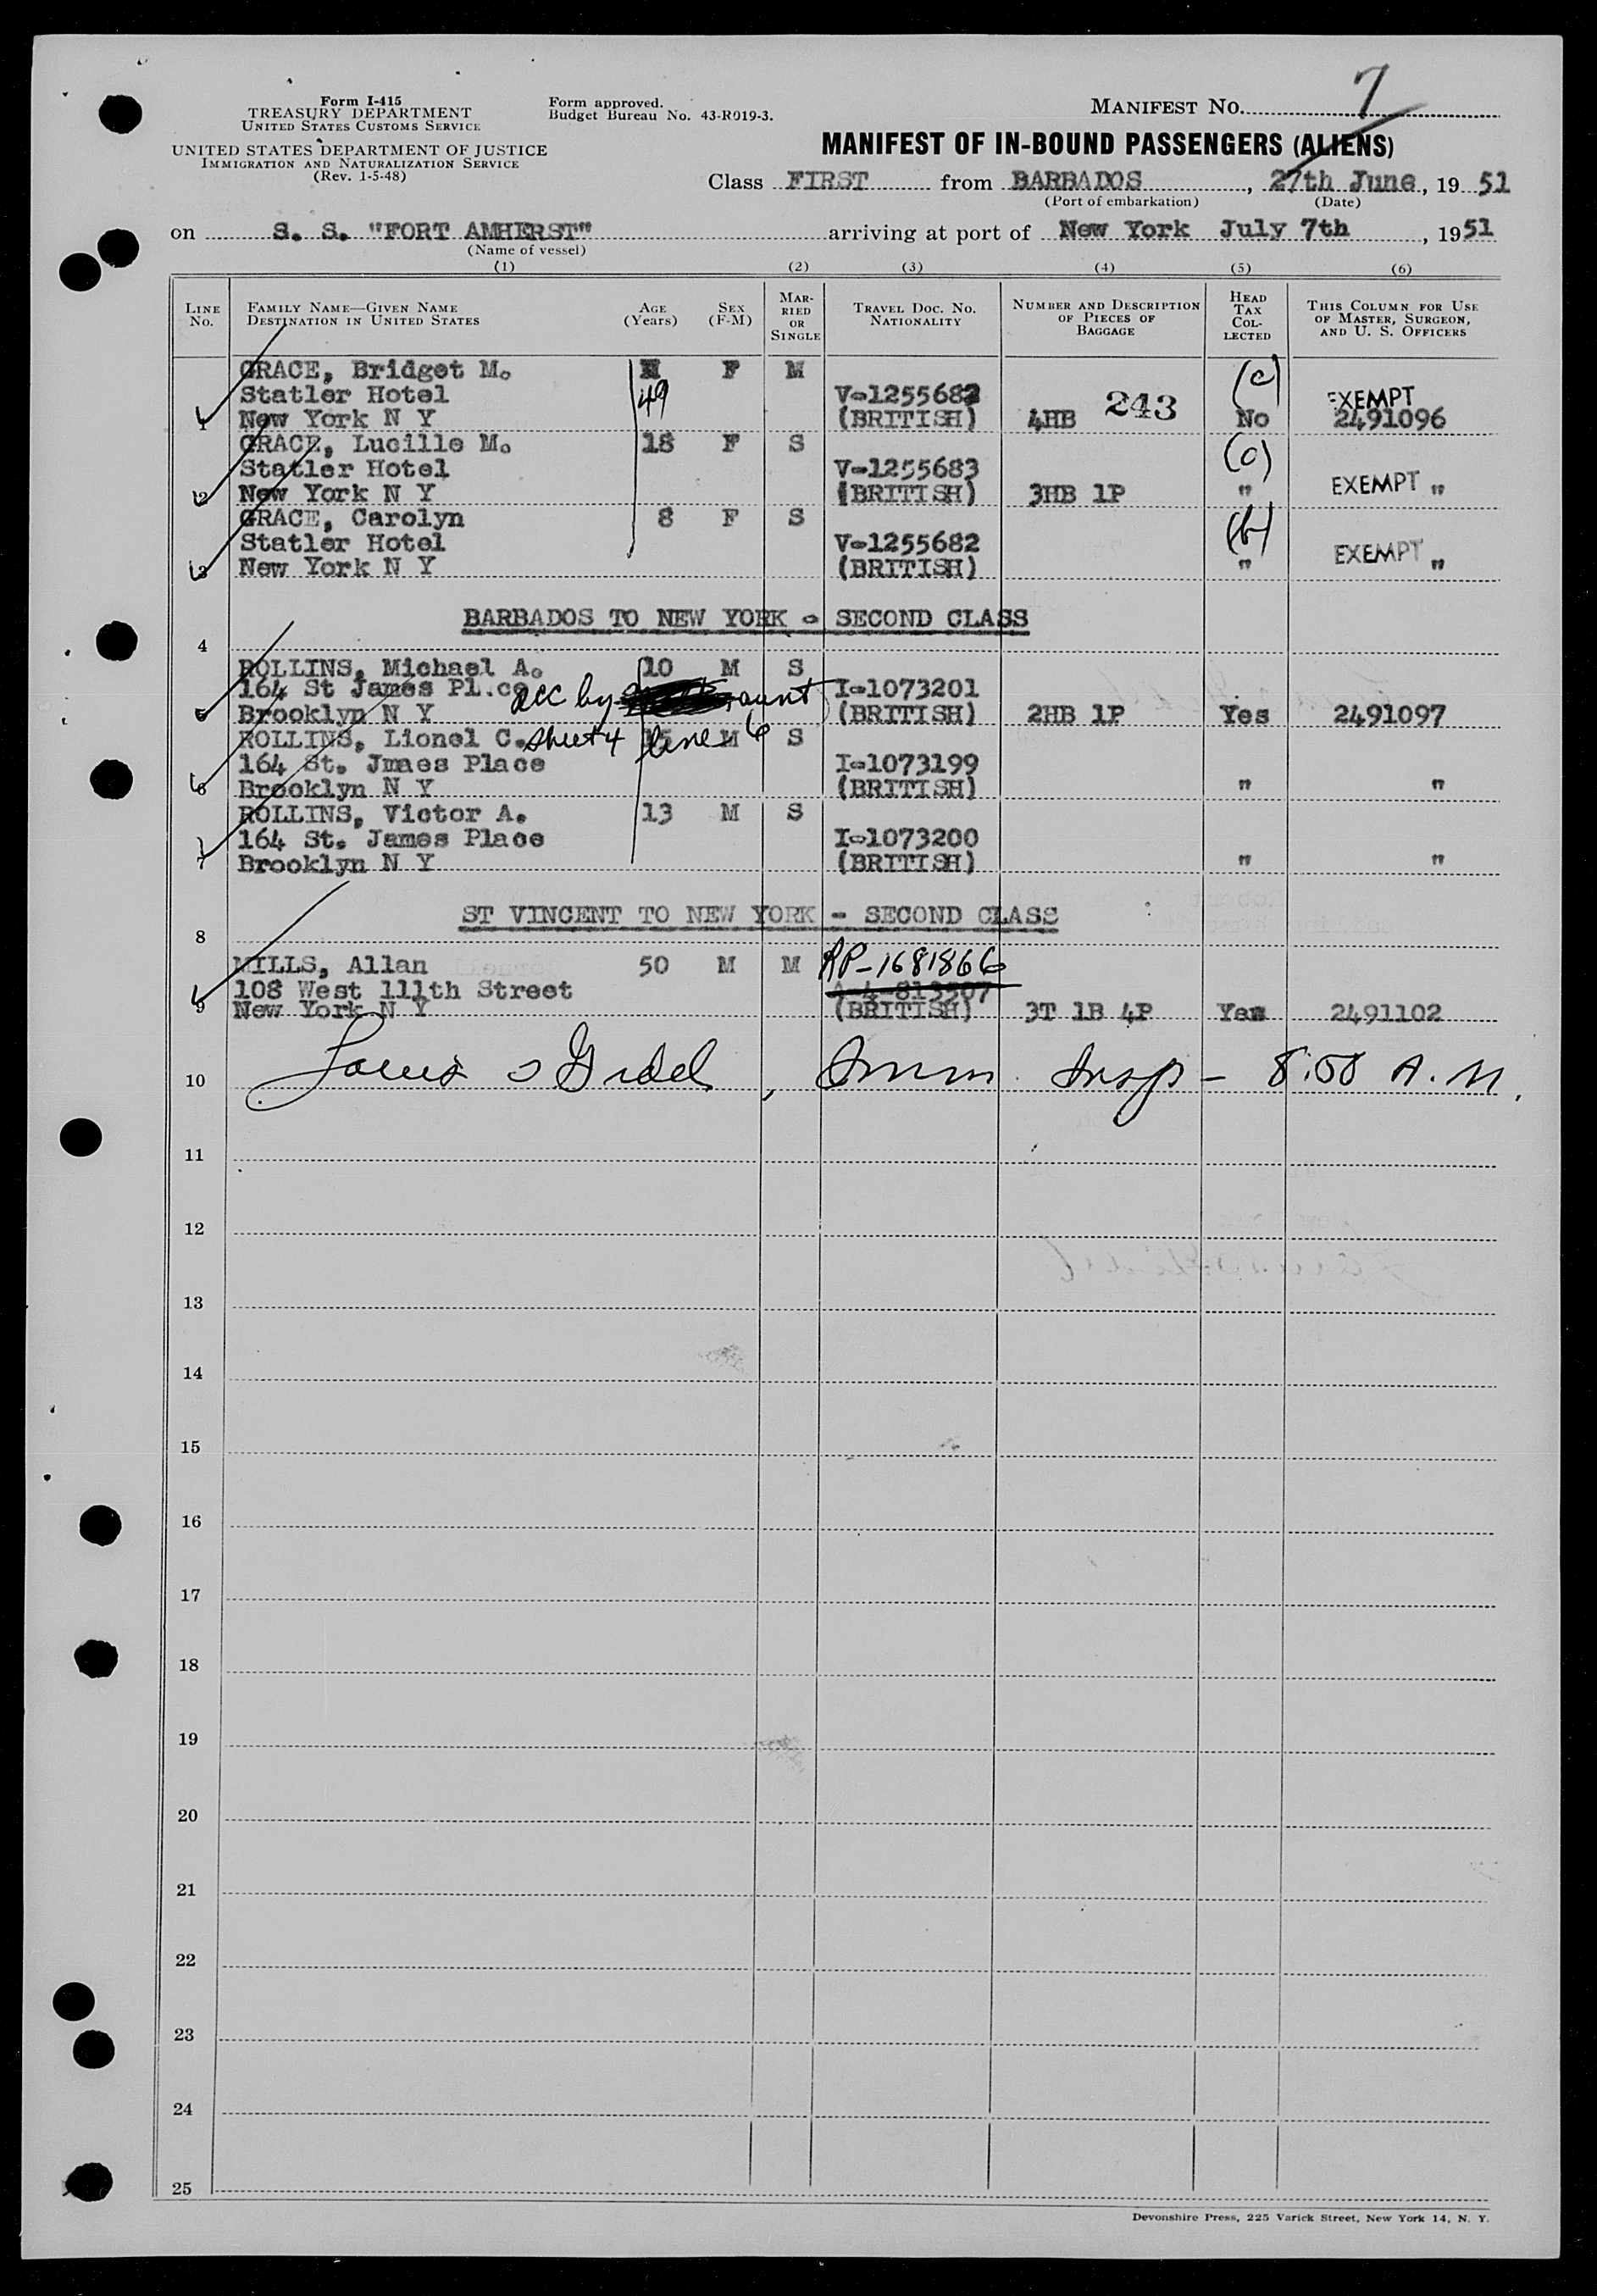 Form I-415
TREASURY DEPARTMENT
UNITED STATES CUSTOMS SERVICE
UNITED STATES DEPARTMENT OF JUSTICE
IMMIGRATION AND NATURALIZATION SERVICE
(Rev. 1-5-48)
Form approved.
Budget Bureau No. 43-R019-3.
MANIFEST NO. 7
MANIFEST OF IN-BOUND PASSENGERS (ALIENS)
Class FIRST from BARBADOS, 27th June, 19 51
(Port of embarkation) (Date)
on S. S. "FORT AMHERST" arriving at port of New York July 7th, 1951
(Name of vessel)
(1) (2) (3) (4) (5) (6)
LINE No. FAMILY NAME—GIVEN NAME DESTINATION IN UNITED STATES AGE (Years) SEX (F-M) MARRIED OR SINGLE TRAVEL DOC. NO. NATIONALITY NUMBER AND DESCRIPTION OF PIECES OF BAGGAGE HEAD TAX COLLECTED THIS COLUMN FOR USE OF MASTER, SURGEON, AND U. S. OFFICERS
GRACE, Bridget M. F M (c)
Statler Hotel 49 V-1255682 243 EXEMPT
1 New York N Y (BRITISH) 4HB No 2491096
GRACE, Lucille M. 18 F S (c)
Statler Hotel V-1255683
2 New York N Y (BRITISH) 3HB 1P " EXEMPT "
GRACE, Carolyn 8 F S (b)
Statler Hotel V-1255682
3 New York N Y (BRITISH) " EXEMPT "
BARBADOS TO NEW YORK - SECOND CLASS
4
ROLLINS, Michael A. 10 M S
164 St James Pl.ce acc by aunt I-1073201
5 Brooklyn N Y (BRITISH) 2HB 1P Yes 2491097
ROLLINS, Lionel C. sheet 4 line 6 M S
164 St. Jmaes Place I-1073199
6 Brooklyn N Y (BRITISH) " "
ROLLINS, Victor A. 13 M S
164 St. James Place I-1073200
7 Brooklyn N Y (BRITISH) " "
ST VINCENT TO NEW YORK - SECOND CLASS
8
MILLS, Allan 50 M M RP-1681866
108 West 111th Street A-4-813507
9 New York N Y (BRITISH) 3T 1B 4P Yes 2491102
10 Imm. Insp - 8:50 A.M.
11
12
13
14
15
16
17
18
19
20
21
22
23
24
25
Devonshire Press, 225 Varick Street, New York 14, N. Y.